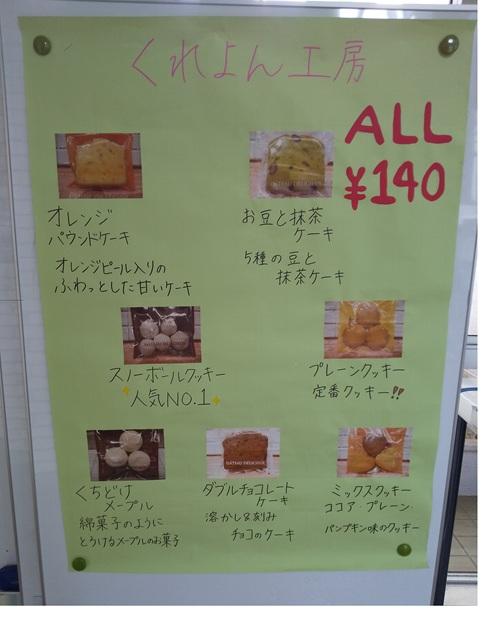 くれよん工房
ALL
¥140
オレンジ
パウンドケーキ
オレンジピール入りの
ふわっとした甘いケーキ
お豆と抹茶
ケーキ
5種の豆と
抹茶ケーキ
スノーボールクッキー
人気NO.1
プレーンクッキー
定番クッキー!!
くちどけ
メープル
綿菓子のように
とろけるメープルのお菓子
ダブルチョコレート
ケーキ
溶かし&刻み
チョコのケーキ
ミックスクッキー
ココア・プレーン・
パンプキン味のクッキー